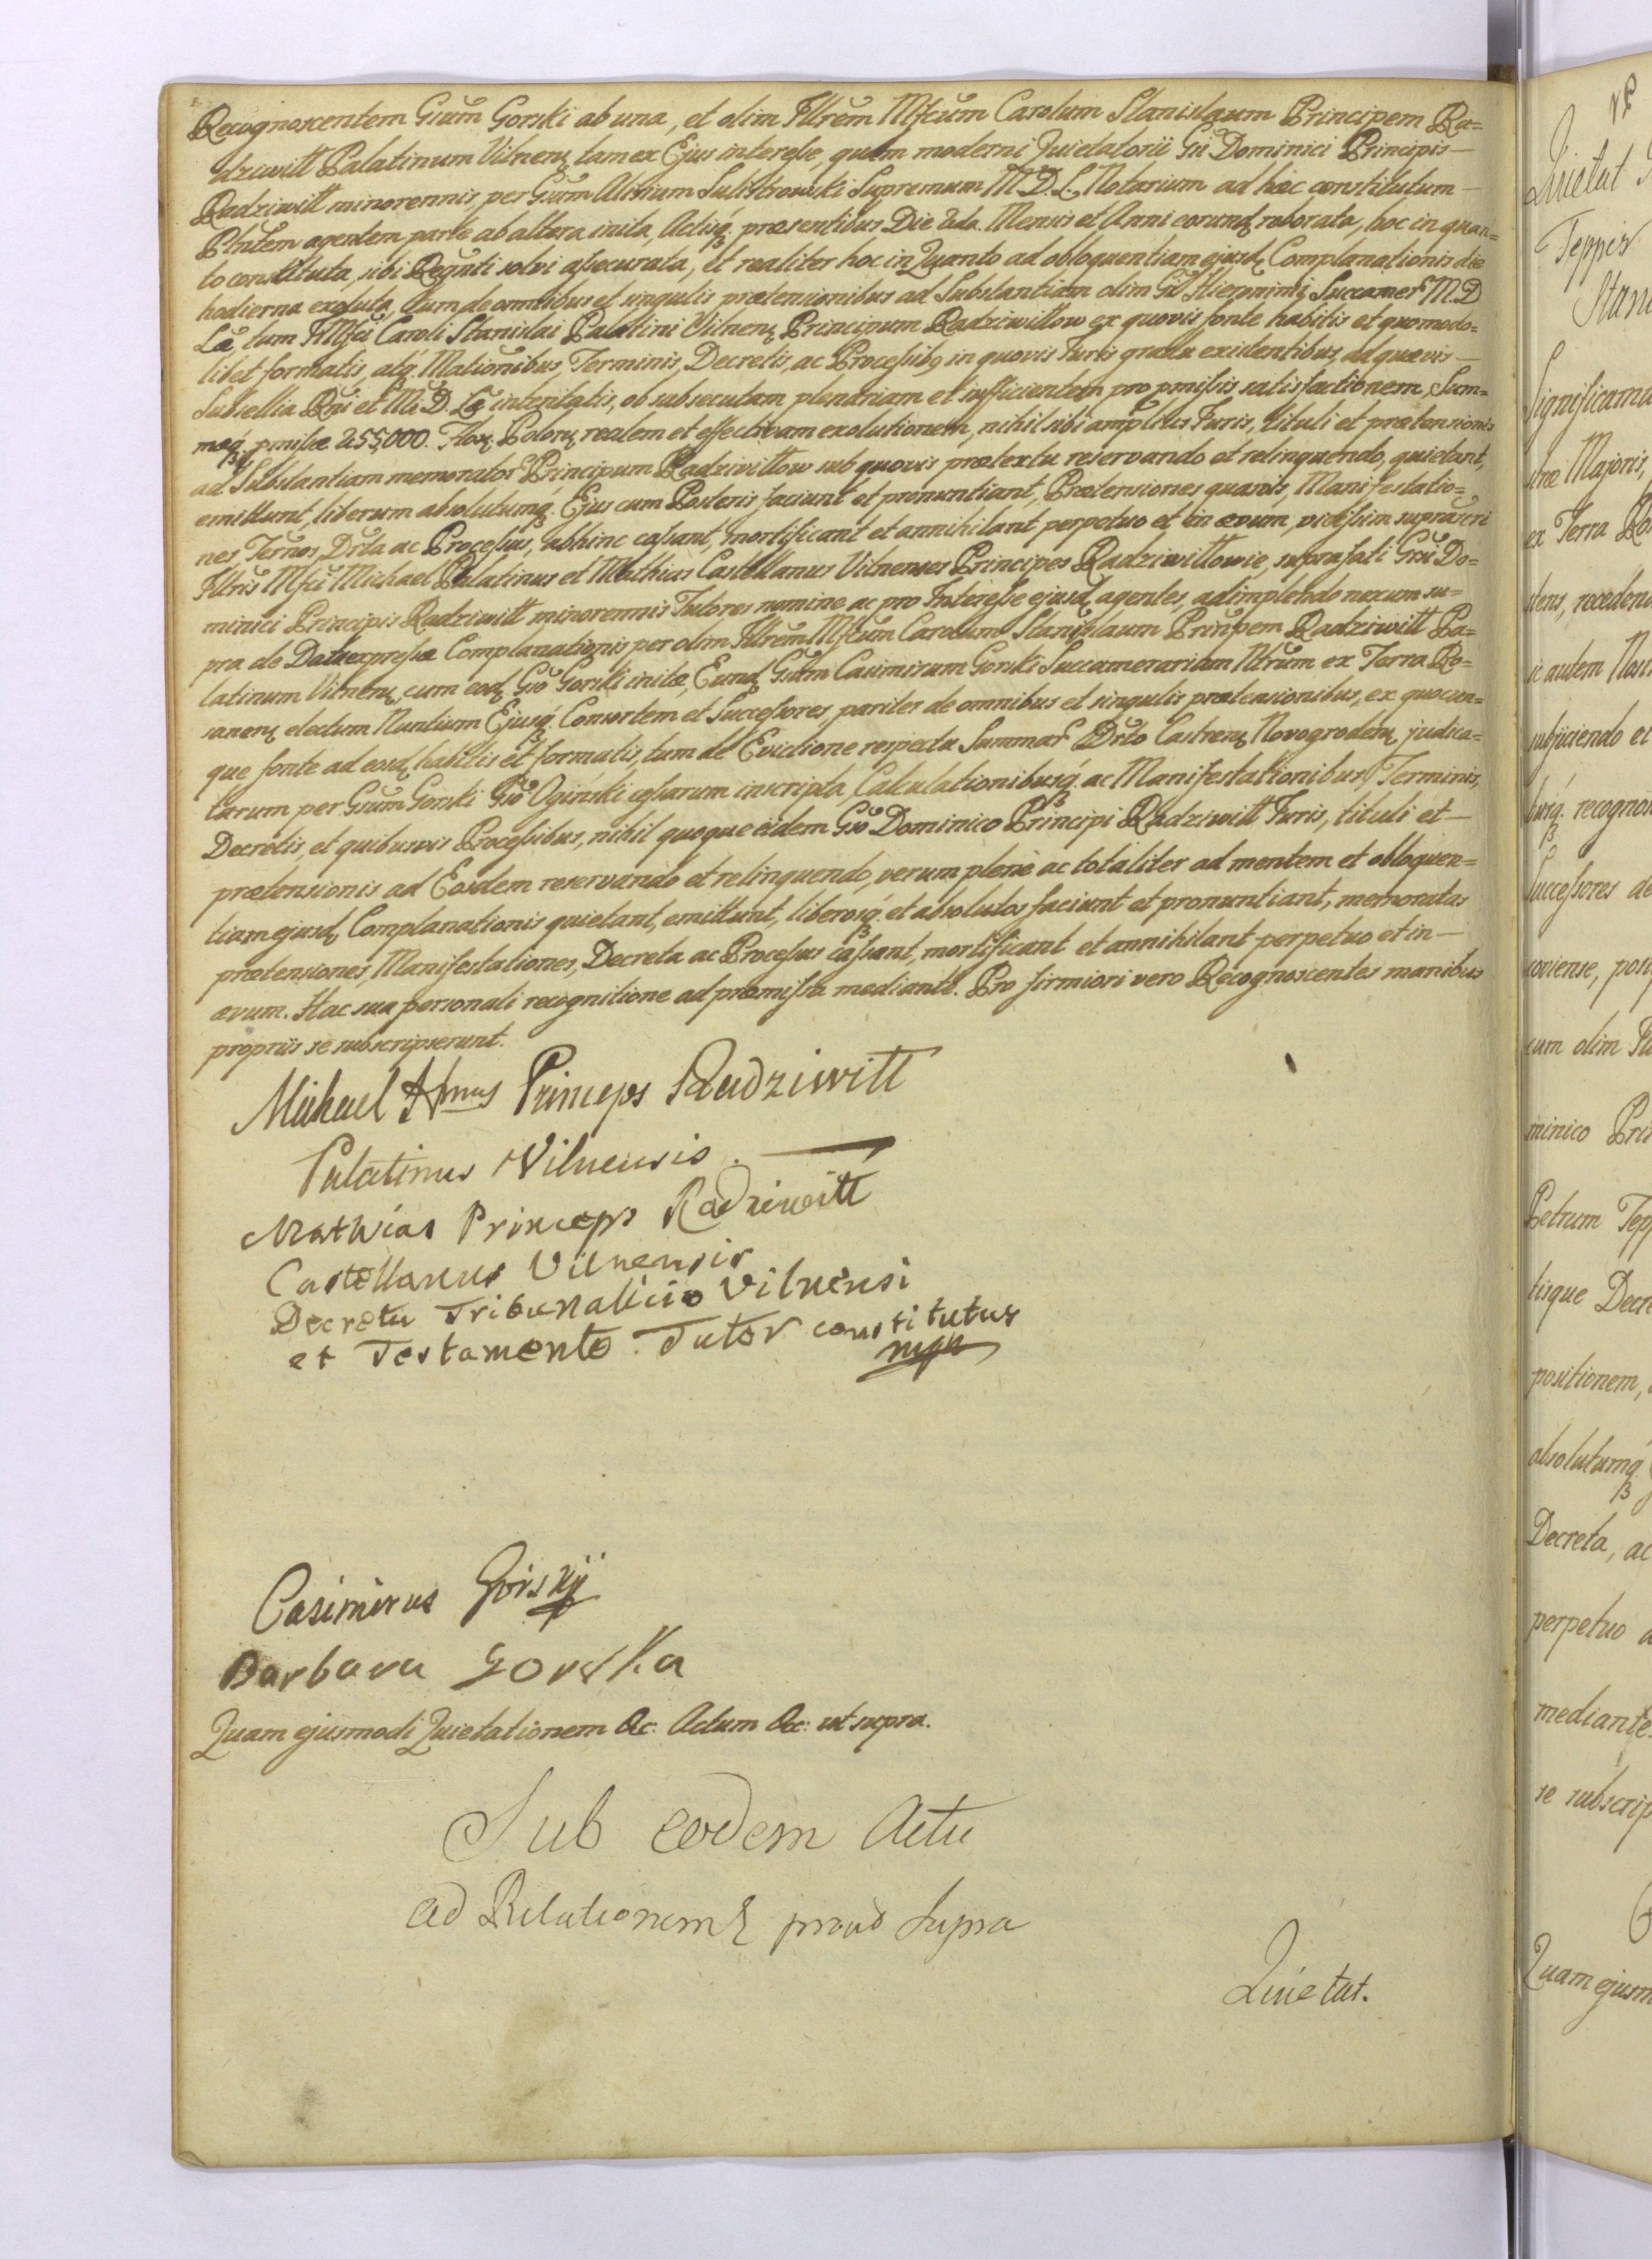 Recognoscentem Grum Gorski ab una, et olim Illrem Mfcum Carolum Stanislaum Principem Ra=
dziwiłł Palatinum Vilnens tam ex Ejus interesse, quam moderni Quietatorii Gsi Dominici Principis —
Radziwiłł minorennis per Grum Aloisium Sulistrowski Supremum M. D. L. Notarium ad hoc constitutum —
Płntem agentem parte ab altera inita, Actisq. præsentibus Die 2da. Mensis et Anni eorund roborata, hoc in quan=
to constituta, sibi Regnti solvi assecurata, et realiter hoc in Quanto ad obloquentiam ejusd Complanationis die
hodierna exoluta, tum de omnibus et singulis prætensionibus ad Substantiam olim Gsi Hieronimi Succamer M. D.
La, tum Mfci Caroli Stanislai Palatini Vilnens Principum Radziwiłłow ex quovis fonte habitis et quomodo=
libet formatis, atq. Mationibus, Terminis, Decretis, ac Processibq in quovis Juris gradu existentibus, ad quævis —
Subsellia Rni et M. D. La intentatis, ob subsecutam plenariam et sufficientem pro pmissis satisfactionem, Sum=
mæq. pmissæ 255,000. Flor. Polon. realem et effectivam exolutionem, nihil sibi amplius Juris, tituli et prætensionis
ad Substantiam memorator Principum Radziwiłłow sub quovis prætextu reservando et relinquendo, quietant,
emittunt, liberum absolutumq. Ejus cum Posteris faciunt et pronuntiant, Prætensiones quasvis, Manifestatio=
nes Ternos Drta ac Processus, abhinc cassant, mortificant et annihilant perpetuo et in ævum, vicissim suprascri
Illris Mfci Michael Palatinus et Mathias Castellanus Vilnenses Principes Radziwiłłowie, suprafati Gsi Do=
minici Principis Radziwiłł minorennis Tutores nomine ac pro Interesse ejusd agentes, adimplendo nexum su=
pra de Data expressæ Complanationis per olim Illrem Mfcum Carolum Stanislaum Prinpem Radziwiłł Pa=
latinum Vilnens, cum eod Gso Gorski initæ, Eund Grum Casimirum Gorski Succamerariden Ntrum ex Terra Ro=
sanens electum Nuntium Ejusq. Consortem et Successores, pariter de omnibus et singulis prætensionibus, ex quocun=
que fonte ad eosd habitis et formatis, tum de Evictione respectu Summar Drto Castrens Novogrodens judica=
tarum per Grum Gorski Gso Oginski cessarum inscripta, Calculationibusq. ac Manifestationibus, Terminis,
Decretis, et quibusvis Processibus, nihil quoque eidem Gso Dominico Principi Radziwiłł Juris, tituli et —
prætensionis ad Eosdem reservando et relinquendo, verum plenè ac totaliter ad mentem et obloquen=
tiam ejusd Complanationis quietant, emittunt, liberosq. et absolutos faciunt et pronuntiant, memoratas
prætensiones, Manifestationes, Decreta ac Processus cassant, mortificant et annihilant perpetuo et in —
ævum. Hac sua personali recognitione ad præmissa mediante. Pro firmiori vero Recognoscentes manibus
propriis se subscripserunt.
Michael Princeps Radziwiłł
Palatinus Vilnensis. —
Mathias Princeps Radziwiłł
Castellanus Vilnensis
Decretu Tribunalicio Vilnensi
et Testamento Tutor constitutus
mpp
Casimirus Gorskij
Barbara Gorska
Quam ejusmodi Quietationem &c: Actum &c: ut supra.
Sub eodem Actu
ad Relationem prout supra
Quietat.
Quietat
Tepper
Stani
Significamu
stræ Majoris,
ex Terra
stens, recedend
ic autem Nost
subjiciendo et
busq. recognov
Successores de
coviense, pos
cum olim
minico Prin
Petrum Tepp
tisque Decre
positionem,
absolutumq.
Decreta, ac
perpetuo
mediante.
se subscrip
Quam ejusm